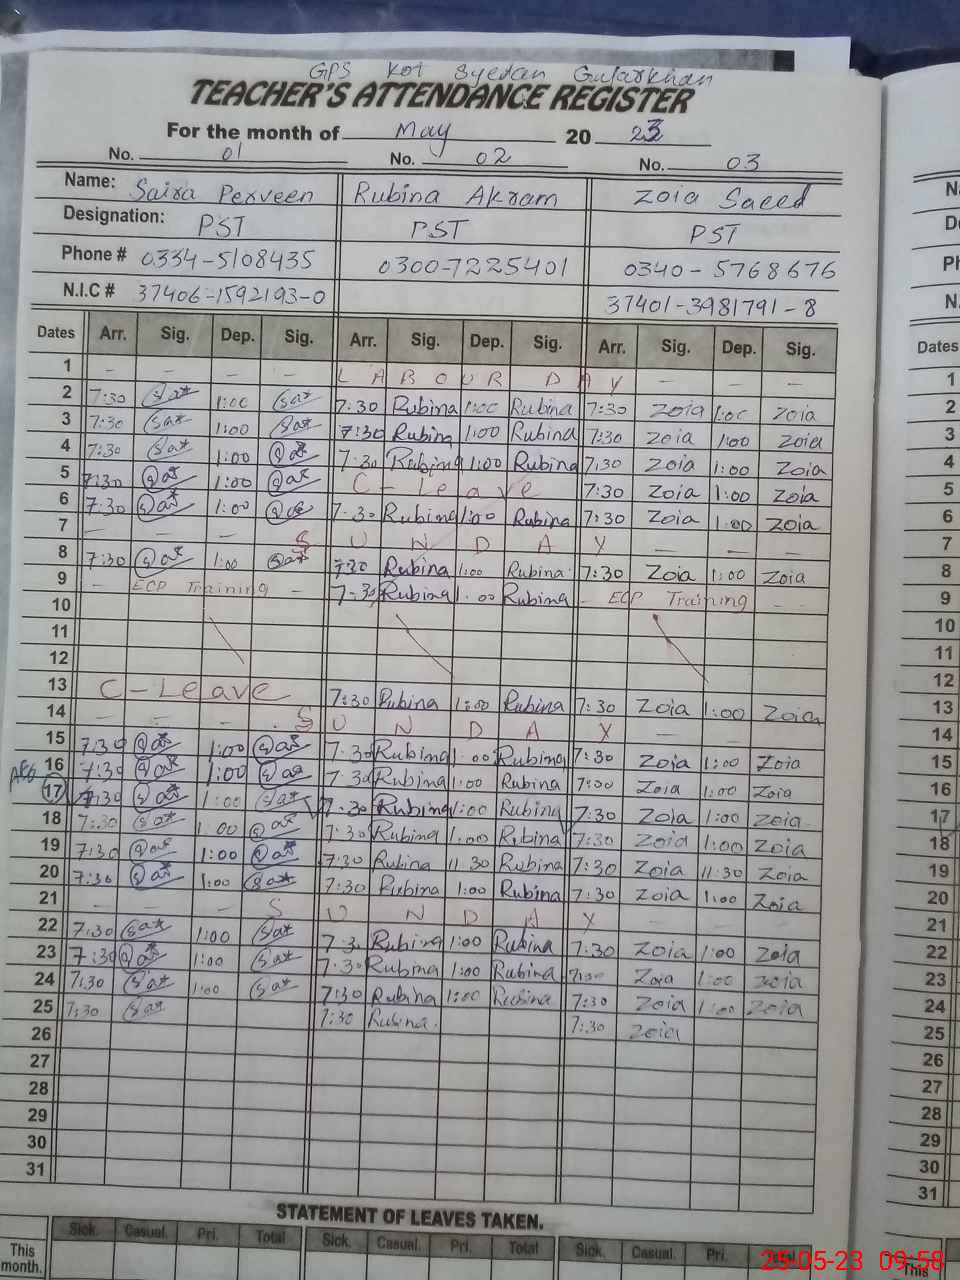 GPS Kot Syedan Gujarkhan
TEACHER'S ATTENDANCE REGISTER
For the month of May 20 23
No. 01 No. 02 No. 03
Name: Saira Perveen Rubina Akram Zoia Saeed
Designation: PST PST PST
Phone # 0334-5108435 0300-7225401 0340-5768676
N.I.C # 37406-1592193-0 37401-3981791-8
Dates Arr. Sig. Dep. Sig. Arr. Sig. Dep. Sig. Arr. Sig. Dep. Sig. Dates
1 - - - - LABOUR DAY - - - 1
2 7:30 Sat 1:00 Sat 7:30 Rubina 1:00 Rubina 7:30 Zoia 1:00 Zoia 2
3 7:30 Sat 1:00 Sat 7:30 Rubina 1:00 Rubina 7:30 Zoia 1:00 Zoia 3
4 7:30 Sat 1:00 Sat 7:30 Rubina 1:00 Rubina 7:30 Zoia 1:00 Zoia 4
5 7:30 Sat 1:00 Sat C-Leave 7:30 Zoia 1:00 Zoia 5
6 7:30 Sat 1:00 Sat 7:30 Rubina 1:00 Rubina 7:30 Zoia 1:00 Zoia 6
7 - - - SUNDAY - - - 7
8 7:30 Sat 1:00 Sat 7:30 Rubina 1:00 Rubina 7:30 Zoia 1:00 Zoia 8
9 - ECP Training - 7:30 Rubina 1:00 Rubina - ECP Training - - 9
10 10
11 11
12 12
13 C-Leave 7:30 Rubina 1:00 Rubina 7:30 Zoia 1:00 Zoia 13
14 - - - SUNDAY - - - 14
15 7:30 Sat 1:00 Sat 7:30 Rubina 1:00 Rubina 7:30 Zoia 1:00 Zoia 15
16 7:30 Sat 1:00 Sat 7:30 Rubina 1:00 Rubina 7:00 Zoia 1:00 Zoia 16
AEO 17 7:30 Sat 1:00 Sat 7:30 Rubina 1:00 Rubina 7:30 Zoia 1:00 Zoia 17
18 7:30 Sat 1:00 Sat 7:30 Rubina 1:00 Rubina 7:30 Zoia 1:00 Zoia 18
19 7:30 Sat 1:00 Sat 7:30 Rubina 11:30 Rubina 7:30 Zoia 11:30 Zoia 19
20 7:30 Sat 1:00 Sat 7:30 Rubina 1:00 Rubina 7:30 Zoia 1:00 Zoia 20
21 - - - SUNDAY - - - 21
22 7:30 Sat 1:00 Sat 7:30 Rubina 1:00 Rubina 7:30 Zoia 1:00 Zoia 22
23 7:30 Sat 1:00 Sat 7:30 Rubina 1:00 Rubina 7:30 Zoia 1:00 Zoia 23
24 7:30 Sat 1:00 Sat 7:30 Rubina 1:00 Rubina 7:30 Zoia 1:00 Zoia 24
25 7:30 Sat 7:30 Rubina 7:30 Zoia 25
26 26
27 27
28 28
29 29
30 30
31 31
STATEMENT OF LEAVES TAKEN.
Sick. Casual. Pri. Total Sick. Casual. Pri. Total Sick. Casual. Pri. Total
This month. This
25-05-23 09:58